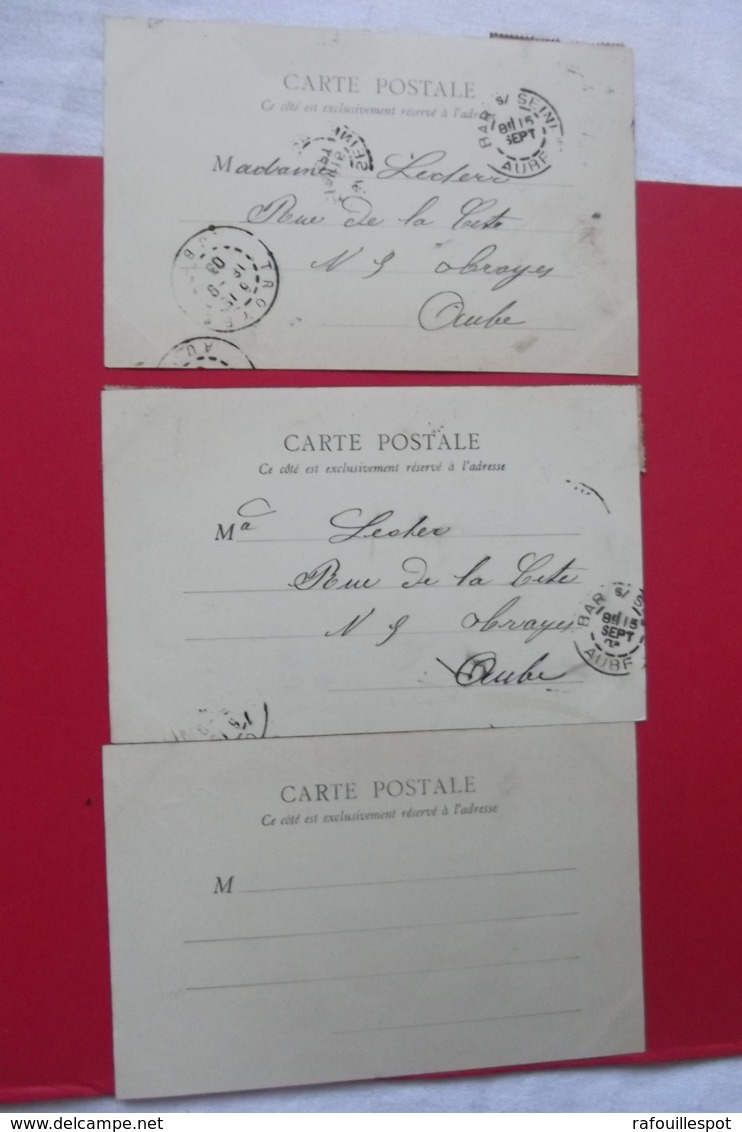 CARTE POSTALE
Ce côté est exclusivement réservé à l'adresse
BAR S/ SEINE
8H 15
SEPT
AUBE
Madame Lecler
Rue de la Cité
N 9
Aube
TROYES
03
AU
CARTE POSTALE
Ce côté est exclusivement réservé à l'adresse
Ma Lecler
Rue de la Cité
N 9
Aube
BAR S/ S
8H 15
SEPT
AUBE
CARTE POSTALE
Ce côté est exclusivement réservé à l'adresse
M
rafouillespot